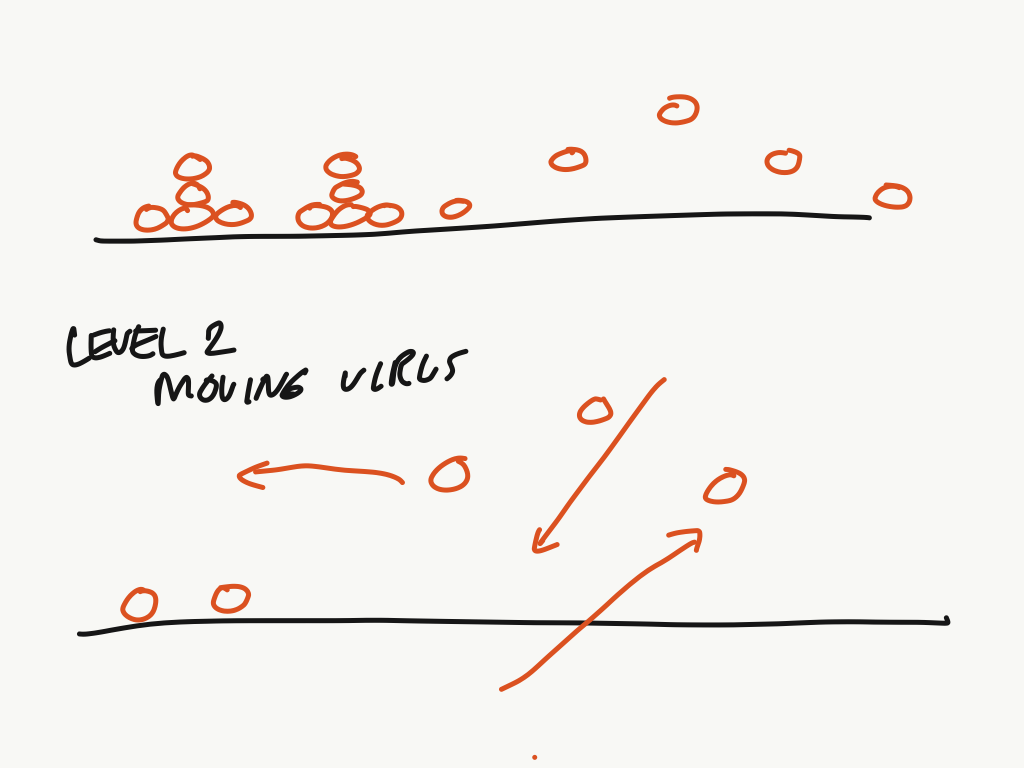 LEVEL 2
MOVING VIRUS